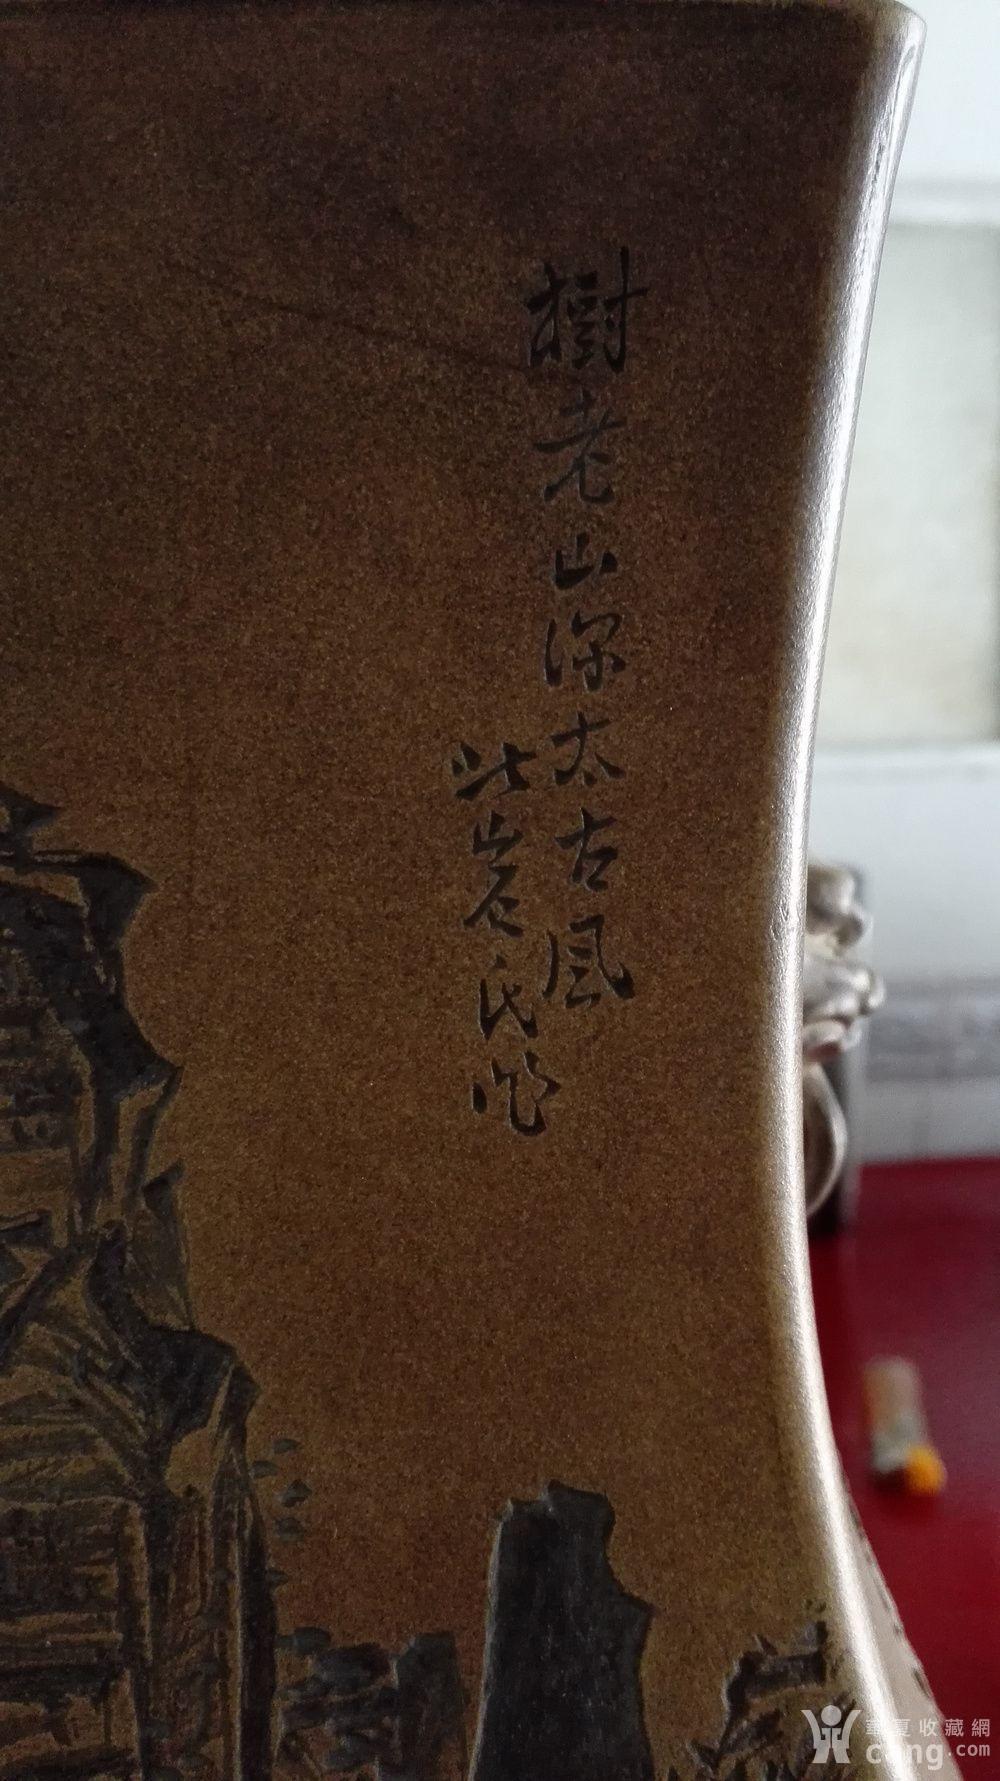 樹老山深太古風
此岩氏作
華夏收藏網
cang.com